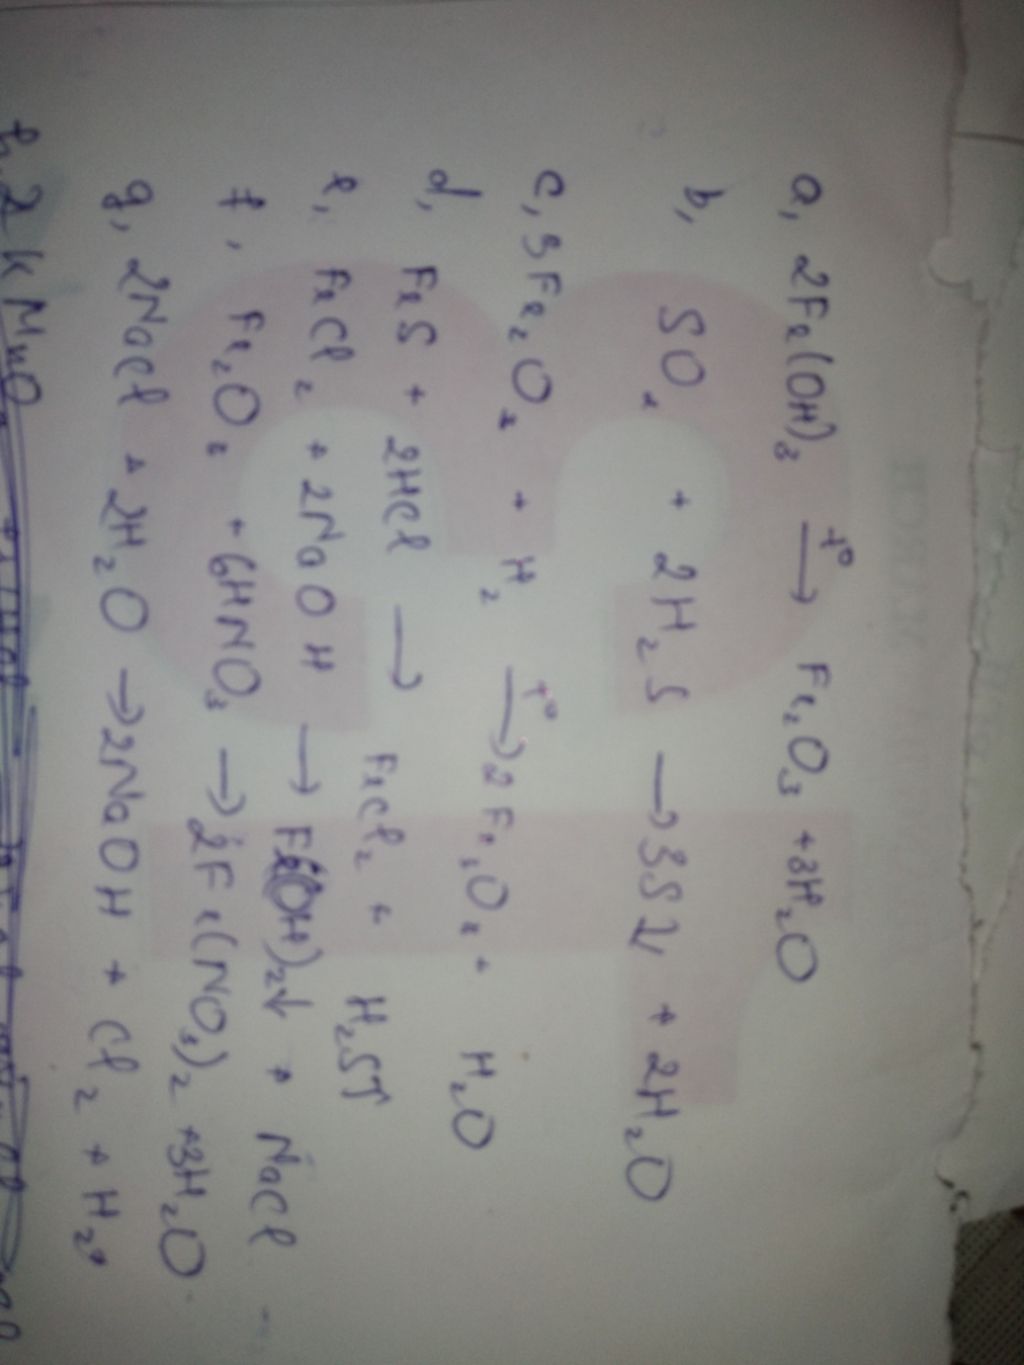 a, 2Fe(OH)₃ —t°→ Fe₂O₃ + 3H₂O
b, SO₂ + 2H₂S → 3S↓ + 2H₂O
c, 3Fe₂O₃ + H₂ —t°→ 2Fe₃O₄ + H₂O
d, FeS + 2HCl → FeCl₂ + H₂S↑
e, FeCl₂ + 2NaOH → Fe(OH)₂↓ + NaCl
f, Fe₂O₃ + 6HNO₃ → 2Fe(NO₃)₂ + 3H₂O
g, 2NaCl + 2H₂O → 2NaOH + Cl₂ + H₂
h, 2KMnO₄